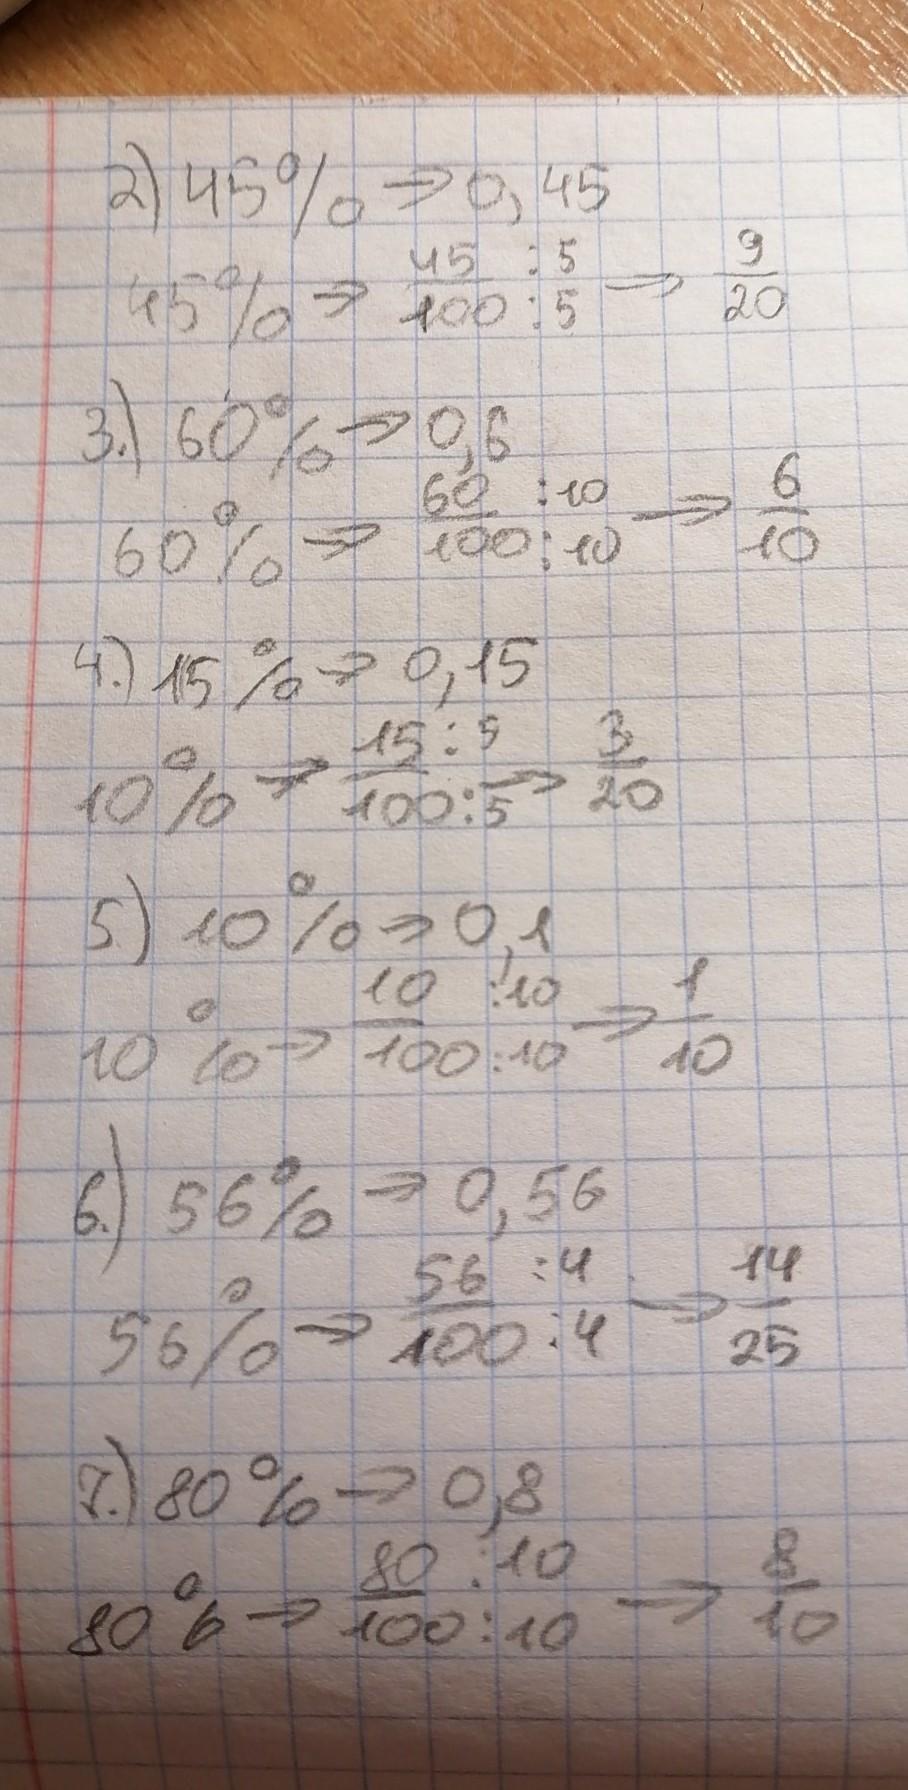 2) 45% → 0,45
45% → 45/100 :5/:5 → 9/20
3.) 60% → 0,6
60% → 60/100 :10/:10 → 6/10
4.) 15% → 0,15
10% → 15/100 :5/:5 → 3/20
5.) 10% → 0,1
10% → 10/100 :10/:10 → 1/10
6.) 56% → 0,56
56% → 56/100 :4/:4 → 14/25
7.) 80% → 0,8
80% → 80/100 :10/:10 → 8/10